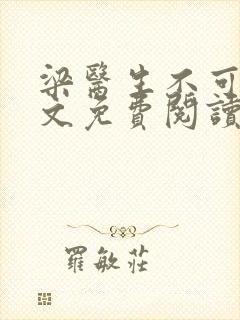 梁醫生不可
文免費閱讀
羅敏莊